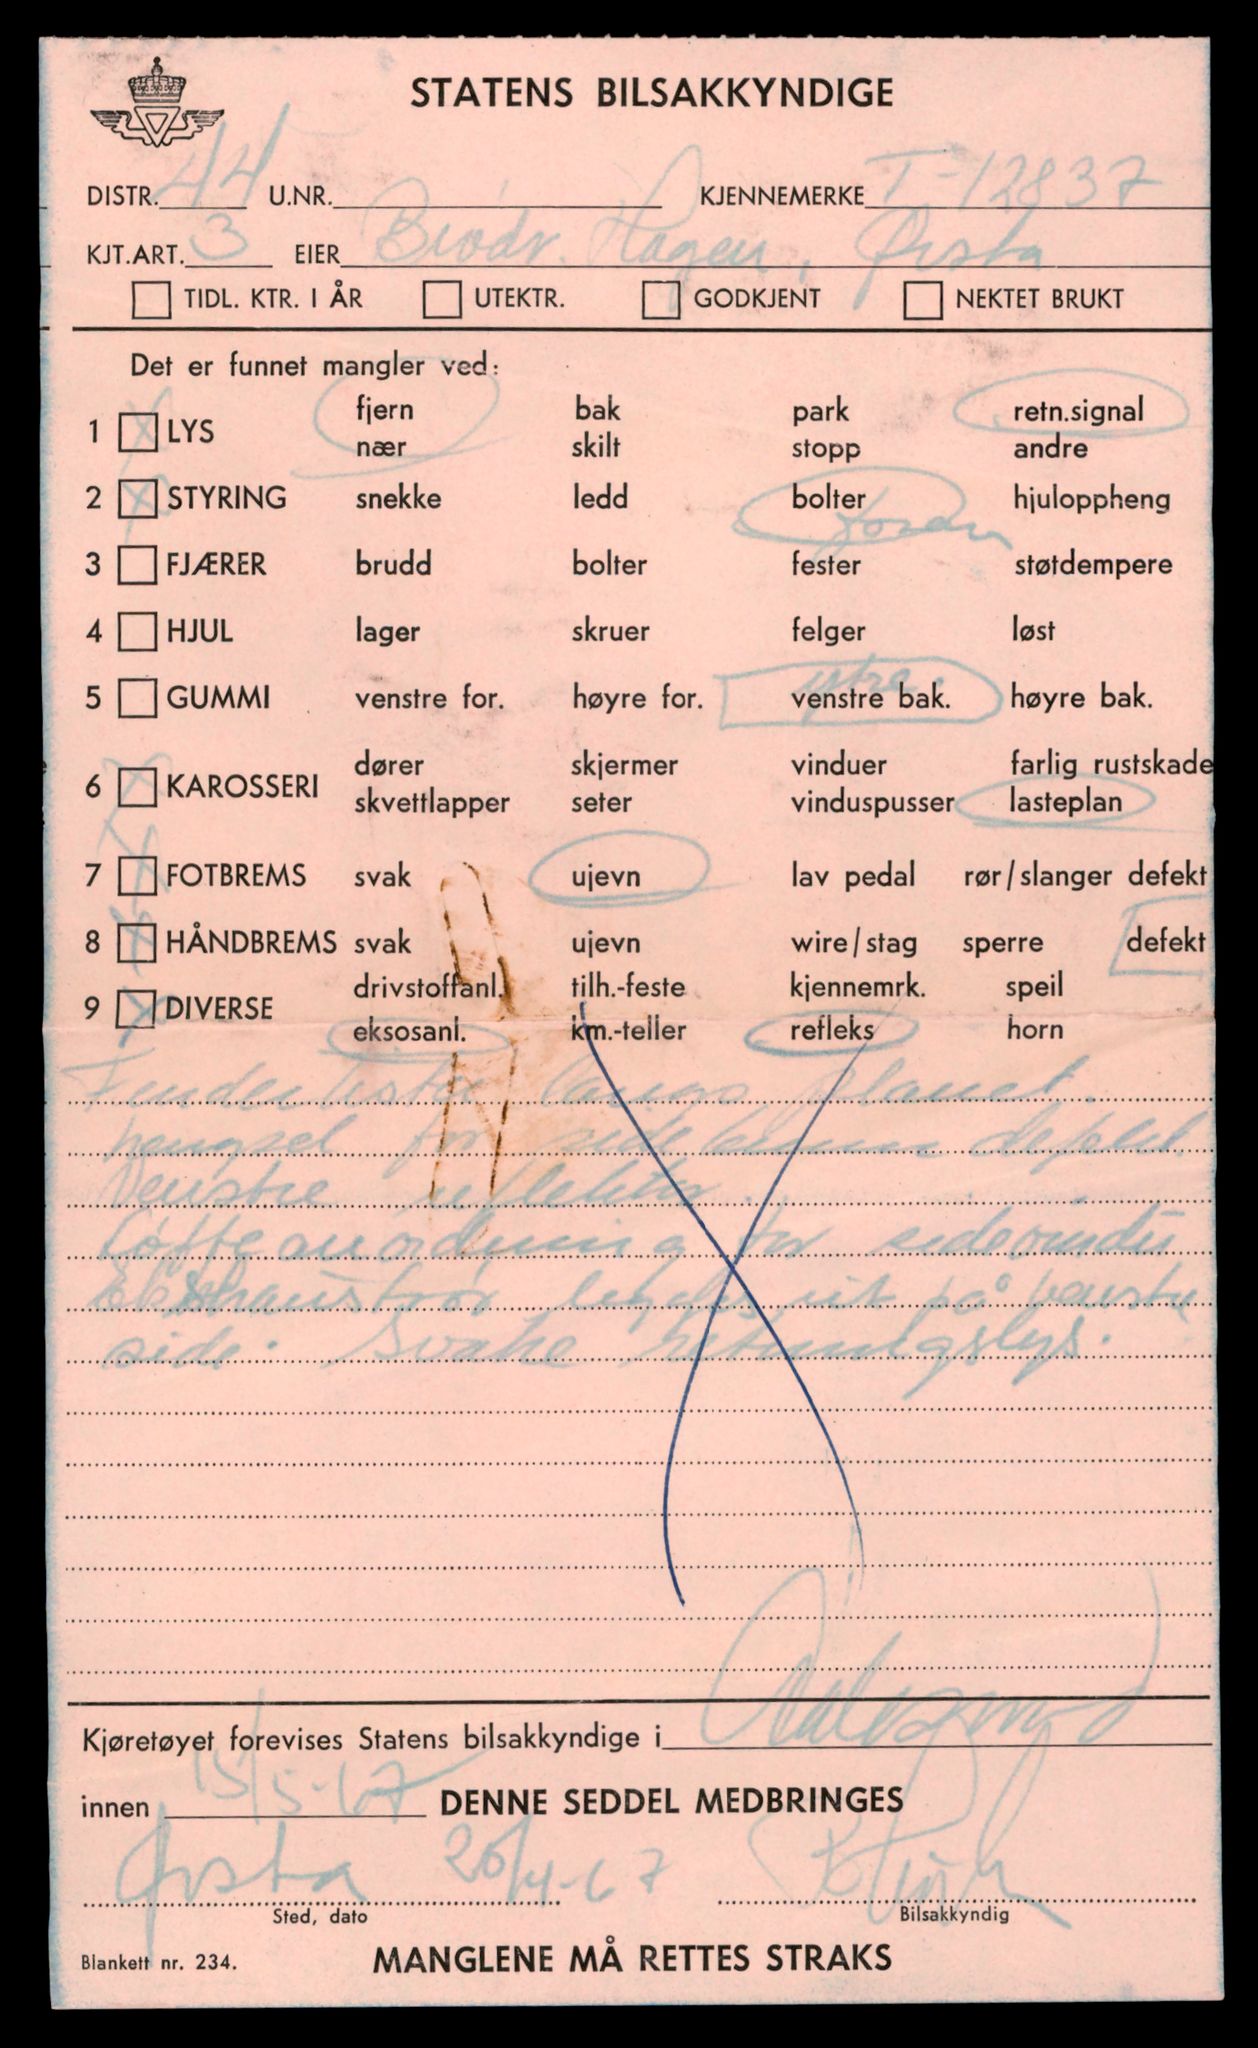 STATENS BILSAKKYNDIGE
DISTR. 44 U.NR. KJENNEMERKE T-12837
KJT.ART. 3 EIER Brødr. Hagen, Ørsta
TIDL. KTR. I ÅR UTEKTR. GODKJENT NEKTET BRUKT
Det er funnet mangler ved:
fjern bak park retn.signal
1 X LYS
nær skilt stopp andre
2 X STYRING snekke ledd bolter hjuloppheng
foran
3 FJÆRER brudd bolter fester støtdempere
4 HJUL lager skruer felger løst
ytre
5 GUMMI venstre for. høyre for. venstre bak. høyre bak.
dører skjermer vinduer farlig rustskade
6 X KAROSSERI
skvettlapper seter vinduspusser lasteplan
7 X FOTBREMS svak ujevn lav pedal rør/slanger defekt
8 X HÅNDBREMS svak ujevn wire/stag sperre defekt
drivstoffanl. tilh.-feste kjennemrk. speil
9 X DIVERSE
eksosanl. km.-teller refleks horn
Fenderlister langs planet.
hengsel for side defekt
Venstre
Løfteanordning for sidevindu
Ekshaustrør legges ut på venstre
side. Svake retningslys.
Kjøretøyet forevises Statens bilsakkyndige i Ålesund
innen 15/5-67 DENNE SEDDEL MEDBRINGES
Ørsta 26/4-67
Sted, dato Bilsakkyndig
Blankett nr. 234. MANGLENE MÅ RETTES STRAKS